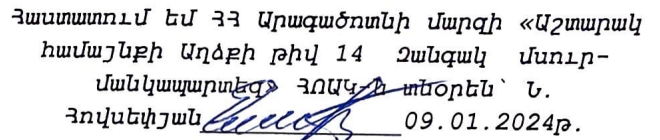 Հաստատում եմ ՀՀ Արագածոտնի մարզի «Աշտարակ
համայնքի Աղձքի թիվ 14 Զանգակ մսուր-
մանկապարտեզ» ՀՈԱԿ-ի տնօրեն՝ Ն.
Հովսեփյան 09.01.2024թ.